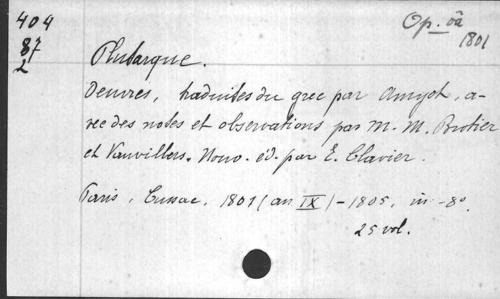 404
87
2
Op. oâ
1801
Plutarque.
Oeuvres, traduites du grec par Amyot, a-
vec des notes et observations par M. M. Brotier
et Vauvillers. Nouv. éd. par E. Clavier.
Paris, Cussac, 1801 (an IX) - 1805, in-8º.
25 vol.